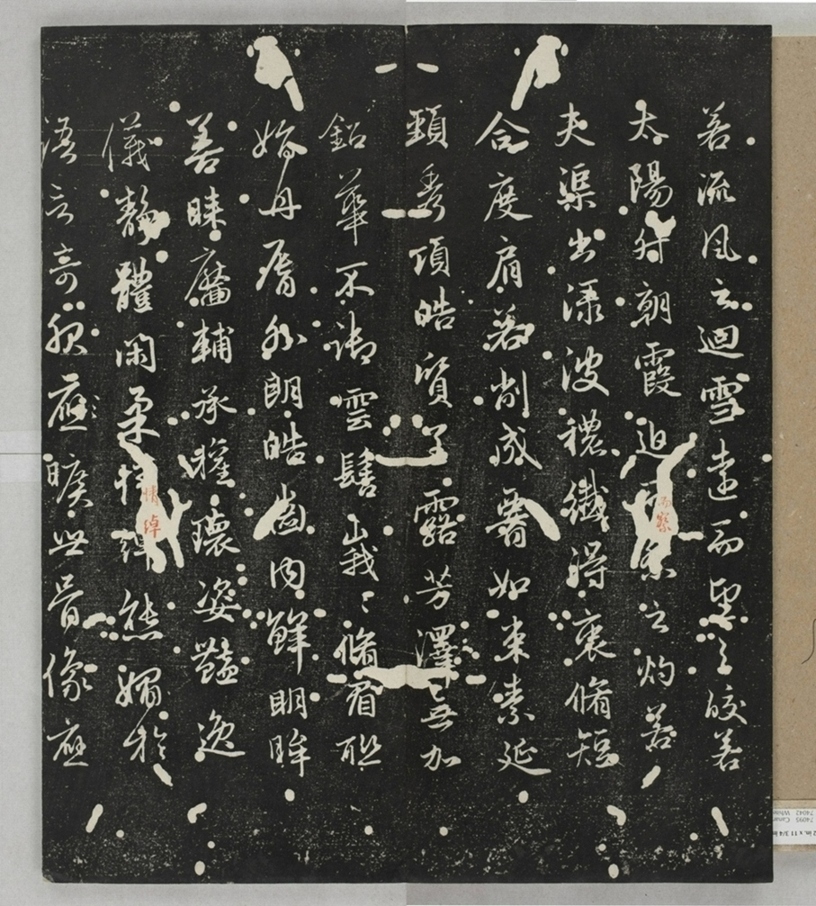 若流風之迴雪遠而望之皎若
太陽升朝霞迫而察之灼若
夫渠出渌波穠纖得衷脩短
合度肩若削成署如束素延
頸秀項皓質呈露芳澤無加
鉛華不御雲髻峩〻脩眉聯
娟丹脣外朗皓齒內鮮明眸
善睞靨輔承權瓌姿豔逸
儀靜體閑柔情綽態媚於
語言奇服應曠世骨像應
而察
情綽